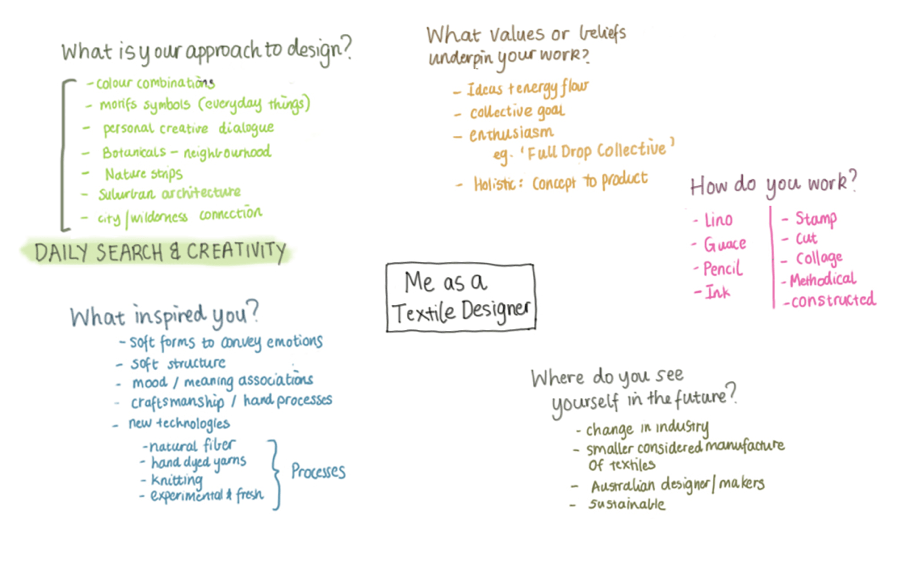 What is your approach to design?
- colour combinations
- motifs symbols (everyday things)
- personal creative dialogue
- Botanicals - neighbourhood
- Nature strips
- Suburban architecture
- city/wilderness connection
DAILY SEARCH & CREATIVITY
What values or beliefs
underpin your work?
- Ideas + energy flow
- collective goal
- enthusiasm
eg. 'Full Drop Collective'
- Holistic: Concept to product
How do you work?
- Lino
- Guace
- Pencil
- Ink
- Stamp
- Cut
- Collage
- Methodical
- constructed
Me as a
Textile Designer
What inspired you?
- soft forms to convey emotions
- soft structure
- mood / meaning associations
- craftsmanship / hand processes
- new technologies
- natural fiber
- hand dyed yarns
- knitting
- experimental & fresh
Processes
Where do you see
yourself in the future?
- change in industry
- smaller considered manufacture
of textiles
- Australian designer/makers
- sustainable